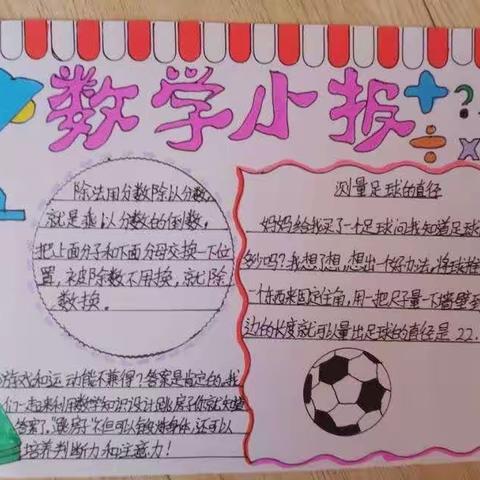 数学小报
除法用分数除以分数,
就是乘以分数的倒数。
把上面分子和下面分母交换一下位
置,被除数不用换,就除
数换。
测量足球的直径
妈妈给我买了一个足球问我知道足球
吗?我想了想,想出一个好办法,将球推
一个东西来固定住角,用一把尺子量一下墙壁到
边的长度就可以量出足球的直径是22.
游戏和运动能不兼得?答案是肯定的,我
们一起来利用数学知识设计跳房子你就知道
答案了,"跳房子"不但可以锻炼身体,还可以
培养判断力和注意力!